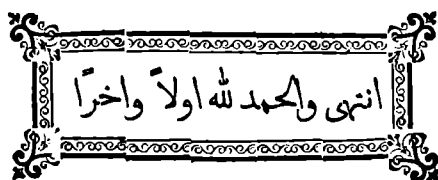 انتهى والحمد لله اولاً واخرًا